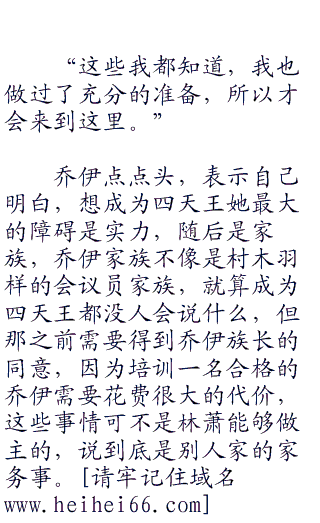 “这些我都知道，我也
做过了充分的准备，所以才
会来到这里。”
乔伊点点头，表示自己
明白，想成为四天王她最大
的障碍是实力，随后是家
族，乔伊家族不像是村木羽
样的会议员家族，就算成为
四天王都没人会说什么，但
那之前需要得到乔伊族长的
同意，因为培训一名合格的
乔伊需要花费很大的代价，
这些事情可不是林萧能够做
主的，说到底是别人家的家
务事。[请牢记住域名
www.heihei66.com]